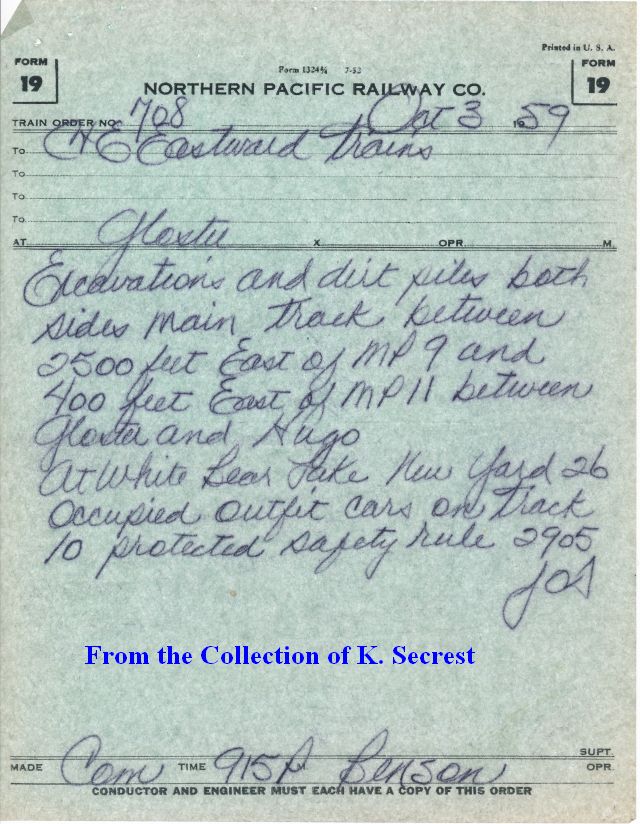 Printed in U. S. A.
FORM 19
Form 1324¾ 7-52
FORM 19
NORTHERN PACIFIC RAILWAY CO.
TRAIN ORDER NO. 708 Oct 3 1959
To C&E Eastward Trains
To
To
To
AT Gloster X OPR. M.
Excavations and dirt piles both
sides main track between
2500 feet East of MP 9 and
400 feet East of MP 11 between
Gloster and Hugo
At White Bear Lake New Yard 26
Occupied outfit cars on track
10 protected safety rule 2905
From the Collection of K. Secrest
SUPT.
MADE Com TIME 915 A M Benson OPR.
CONDUCTOR AND ENGINEER MUST EACH HAVE A COPY OF THIS ORDER